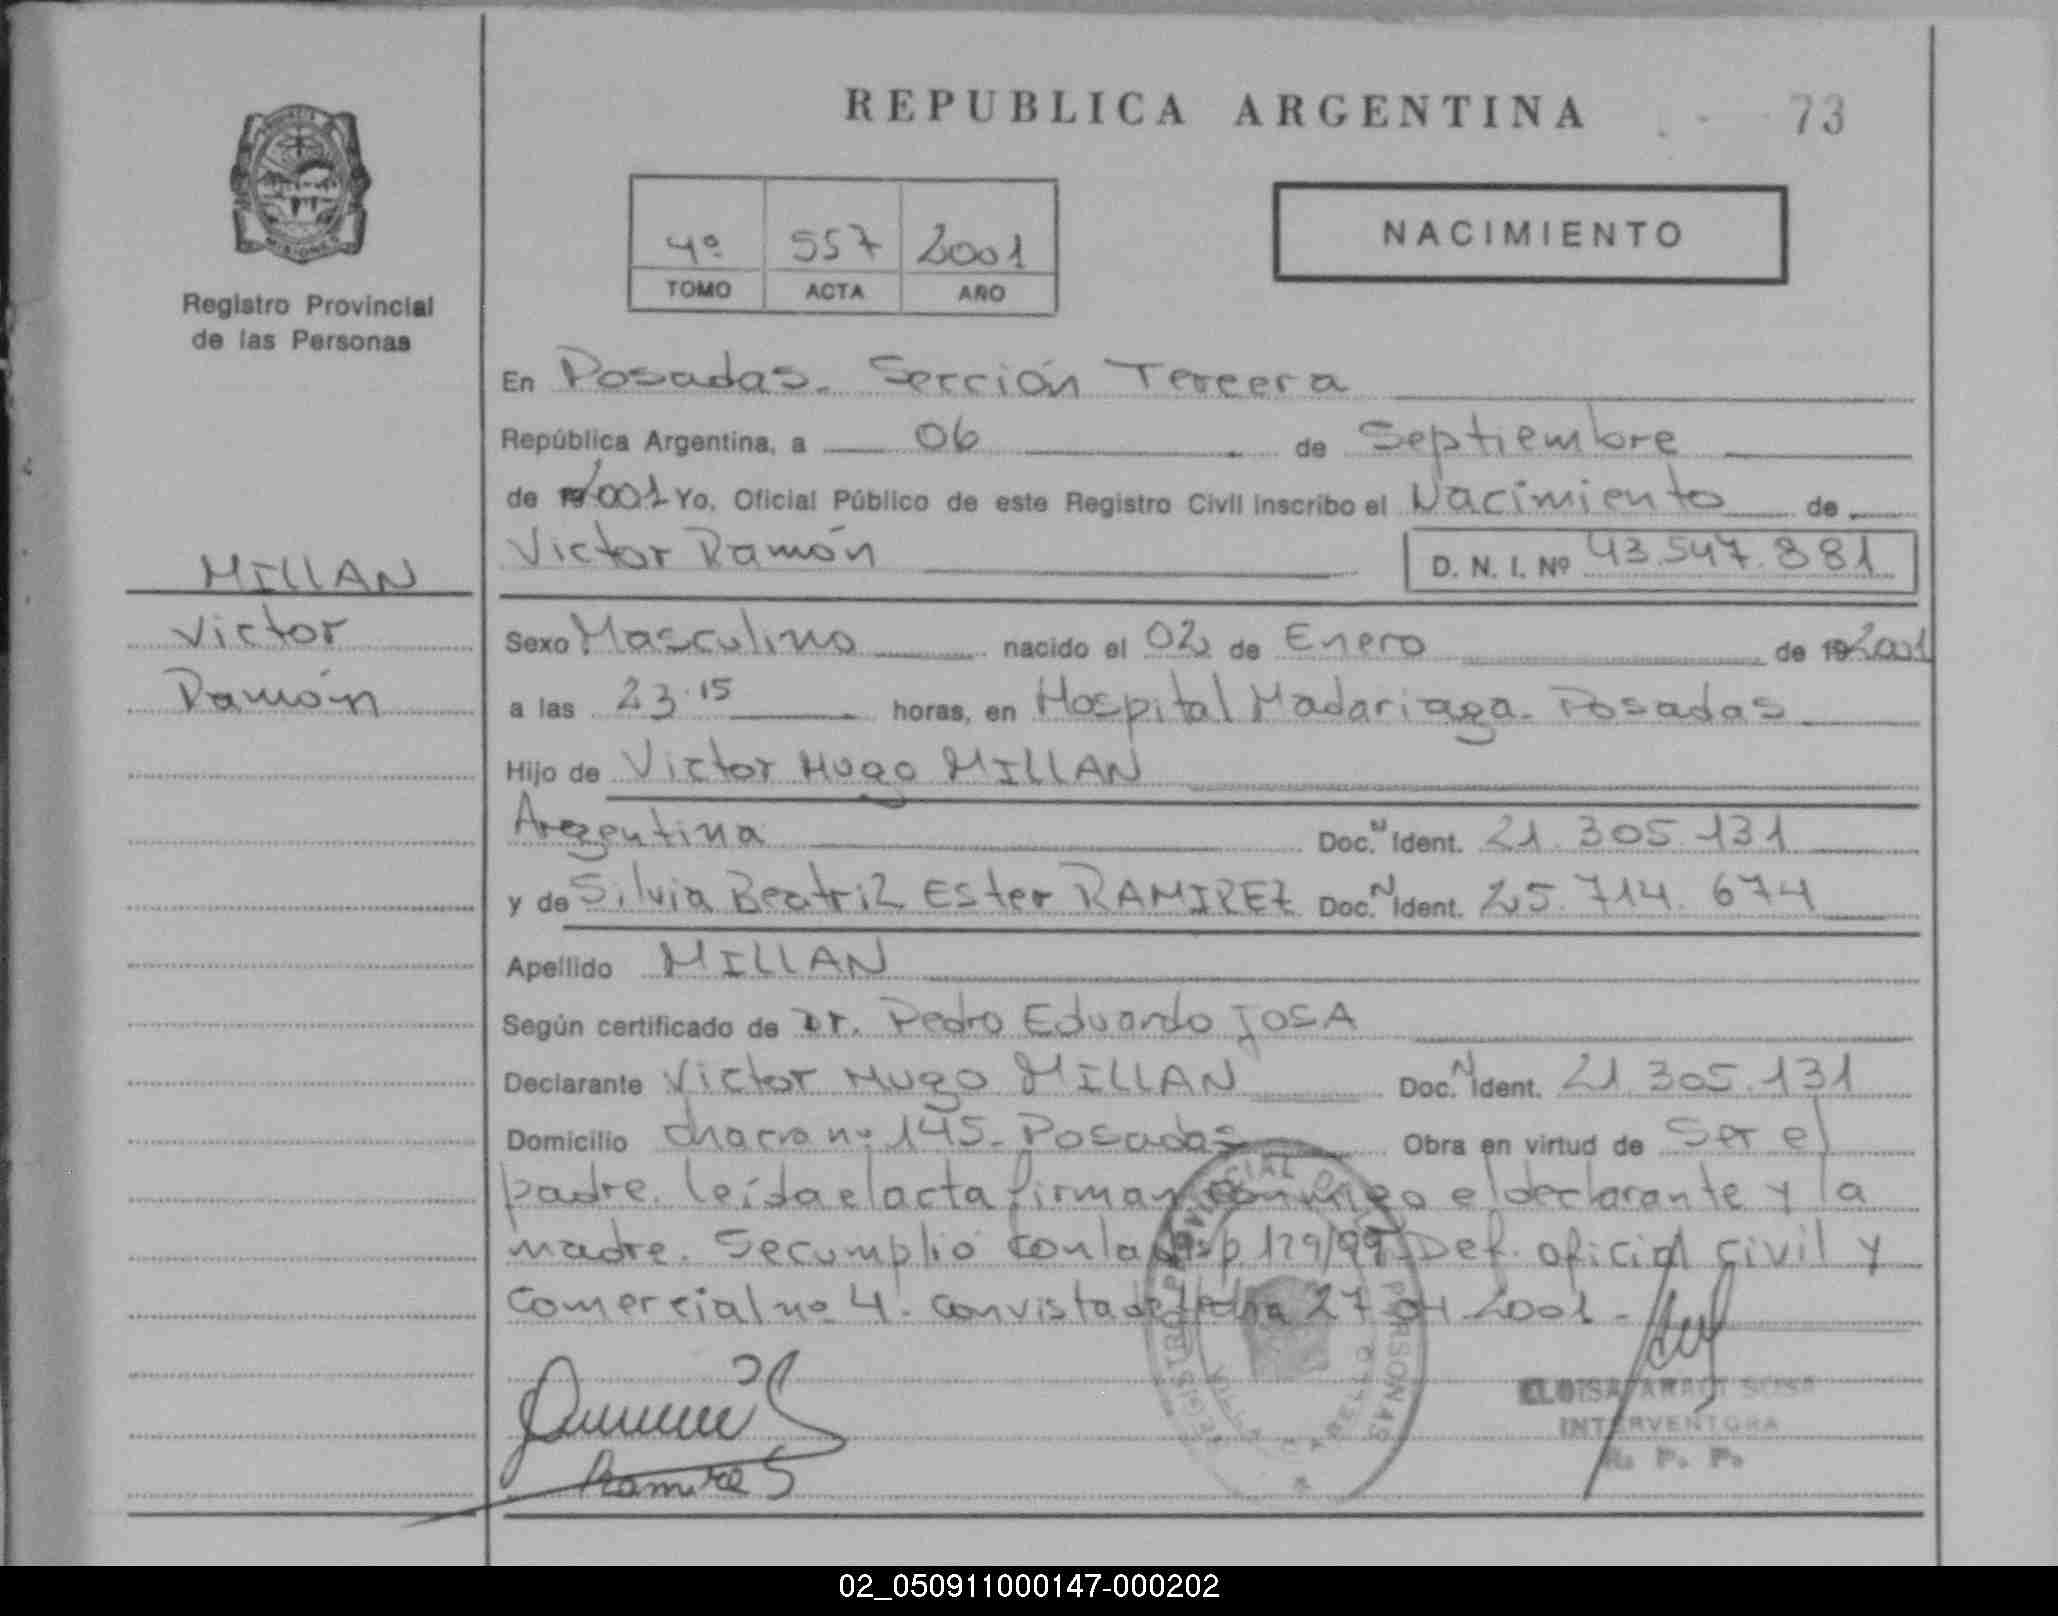 REPUBLICA ARGENTINA
73
MISIONES
Registro Provincial
de las Personas
4º 557 2001
TOMO ACTA AÑO
NACIMIENTO
En Posadas. Sección Tercera
República Argentina, a 06 de Septiembre
de 2001 Yo, Oficial Público de este Registro Civil inscribo el Nacimiento de
Victor Ramón D. N. I. Nº 43.547.881
MILLAN
Victor
Ramón
Sexo Masculino nacido el 02 de Enero de 2001
a las 23.15 horas, en Hospital Madariaga. Posadas
Hijo de Victor Hugo MILLAN
Argentina Doc. N Ident. 21.305.131
y de Silvia Beatriz Ester RAMIREZ Doc. N Ident. 25.714.674
Apellido MILLAN
Según certificado de Dr. Pedro Eduardo JOSA
Declarante Victor Hugo MILLAN Doc. N Ident. 21.305.131
Domicilio chacra nº 145. Posadas Obra en virtud de Ser el
padre. leída el acta firman conmigo el declarante y la
madre. Se cumplió con la Disp. 129/99. Def. oficial civil y
Comercial nº 4. con vista de fecha 27 04 2001.
Ramirez S
REGISTRO PROVINCIAL DE PERSONAS
VILLA CABELLO
ELOISA SOSA
INTERVENTORA
R. P. P.
02_050911000147-000202